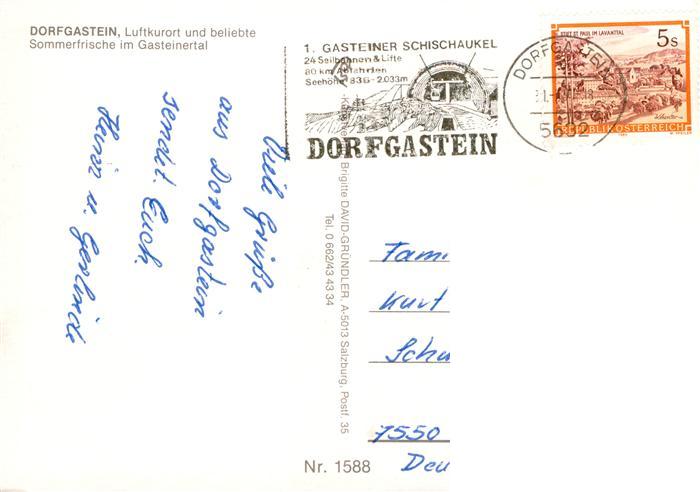 DORFGASTEIN, Luftkurort und beliebte
Sommerfrische im Gasteinertal
1. GASTEINER SCHISCHAUKEL
24 Seilbahnen & Lifte
80 km Abfahrten
Seehöhe 836 - 2.033m
DORFGASTEIN
DORFGASTEIN
5632
STIFT ST. PAUL IM LAVANTTAL
5s
REPUBLIK ÖSTERREICH
Viele Grüße
aus Dorfgastein
sendet Euch
Heini u. Gerlinde
Brigitte DAVID-GRÜNDLER, A-5013 Salzburg, Postf. 35
Tel. 0 662/43 43 34
Fam
Kurt
Schu
7550
Deu
Nr. 1588